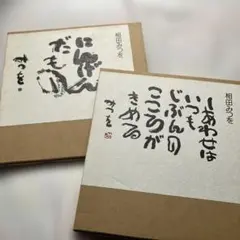 相田みつを
にんげん
だもの
みつを
相田みつを
しあわせは
いつも
じぶんの
こころが
きめる
みつを